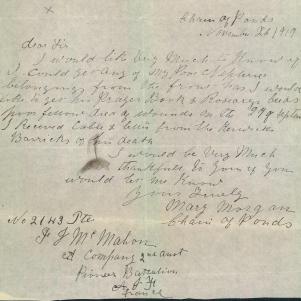 Chain of Ponds
November 26 1919
Dear Sir
I would like very Much to Know if
I could get any of My Son Neptune
belongings from the front has I would
like to get his Prayer Book & Rosary Beads
from fellow Died of wounds on the 29 of Septem
I received Cable & letter from the
Barricks of his death
I would be Very Much
thankfull to you if you
would let me Know
Yours Truly
Mary Morgan
Chain of Ponds
No 2143 Pte
J J McMahon
A Company 2nd Aust
Pioneer Battalion
A I F
France